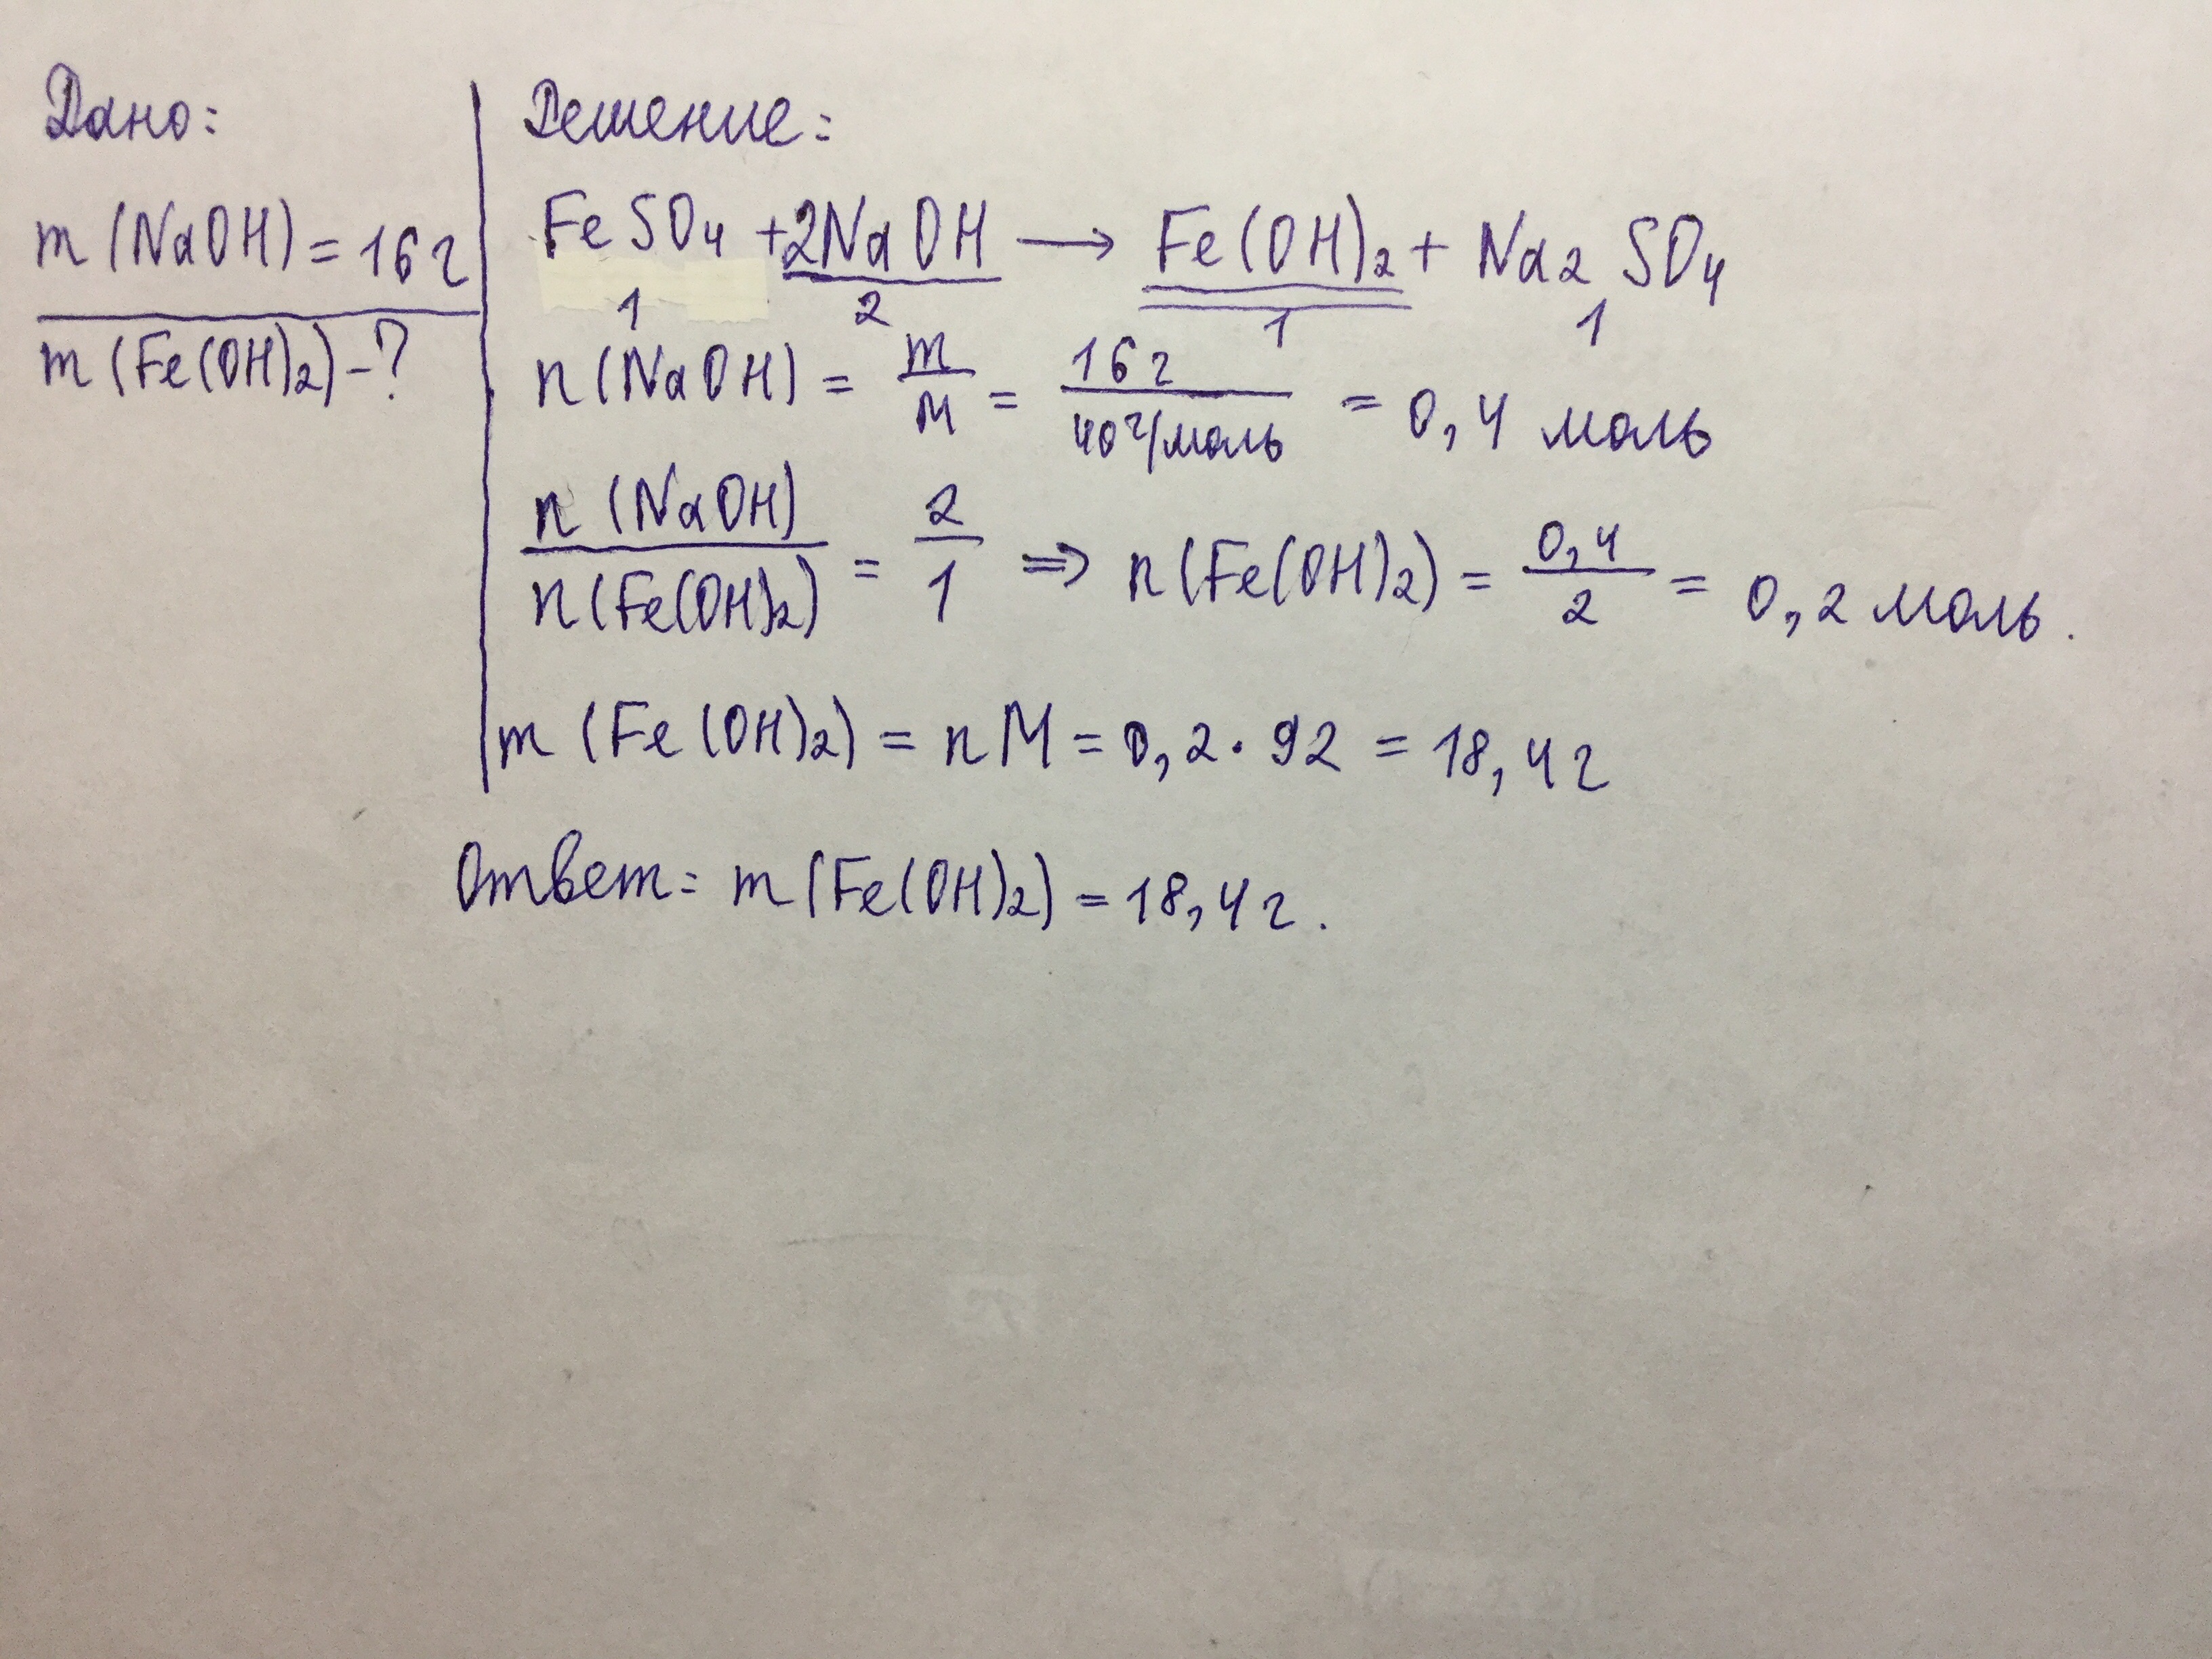 Дано:
m (NaOH) = 16 г
m (Fe(OH)₂) - ?
Решение:
FeSO₄ + 2NaOH → Fe(OH)₂ + Na₂SO₄
1 2 1 1
n (NaOH) = m/M = 16 г / 40 г/моль = 0,4 моль
n (NaOH) / n (Fe(OH)₂) = 2/1 ⇒ n (Fe(OH)₂) = 0,4/2 = 0,2 моль.
m (Fe(OH)₂) = nM = 0,2 · 92 = 18,4 г
Ответ: m (Fe(OH)₂) = 18,4 г.